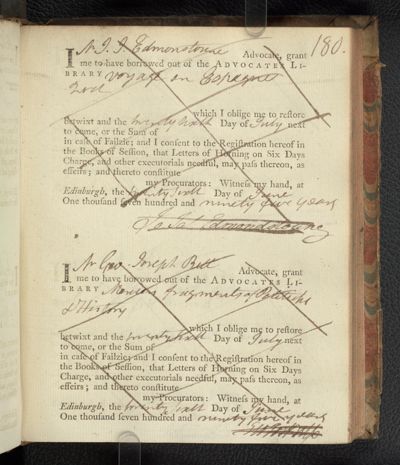 180.
I Mr J. J. Edmonstoune Advocate, grant
me to have borrowed out of the ADVOCATES LI-
BRARY Voyage en Espagne
2 vol
which I oblige me to restore
betwixt and the twenty sixth Day of July next
to come, or the Sum of
in case of Failzie; and I consent to the Registration hereof in
the Books of Session, that Letters of Horning on Six Days
Charge, and other executorials needful, may pass thereon, as
effeirs; and thereto constitute
my Procurators: Witness my hand, at
Edinburgh, the twenty sixth Day of June
One thousand seven hundred and ninety five years
Edmondstoune
I Mr Geo. Joseph Bell Advocate, grant
me to have borrowed out of the ADVOCATES LI-
BRARY fragments of Politicks
& History
which I oblige me to restore
betwixt and the twenty sixth Day of July next
to come, or the Sum of
in case of Failzie; and I consent to the Registration hereof in
the Books of Session, that Letters of Horning on Six Days
Charge, and other executorials needful, may pass thereon, as
effeirs; and thereto constitute
my Procurators: Witness my hand, at
Edinburgh, the twenty sixth Day of June
One thousand seven hundred and ninety five years